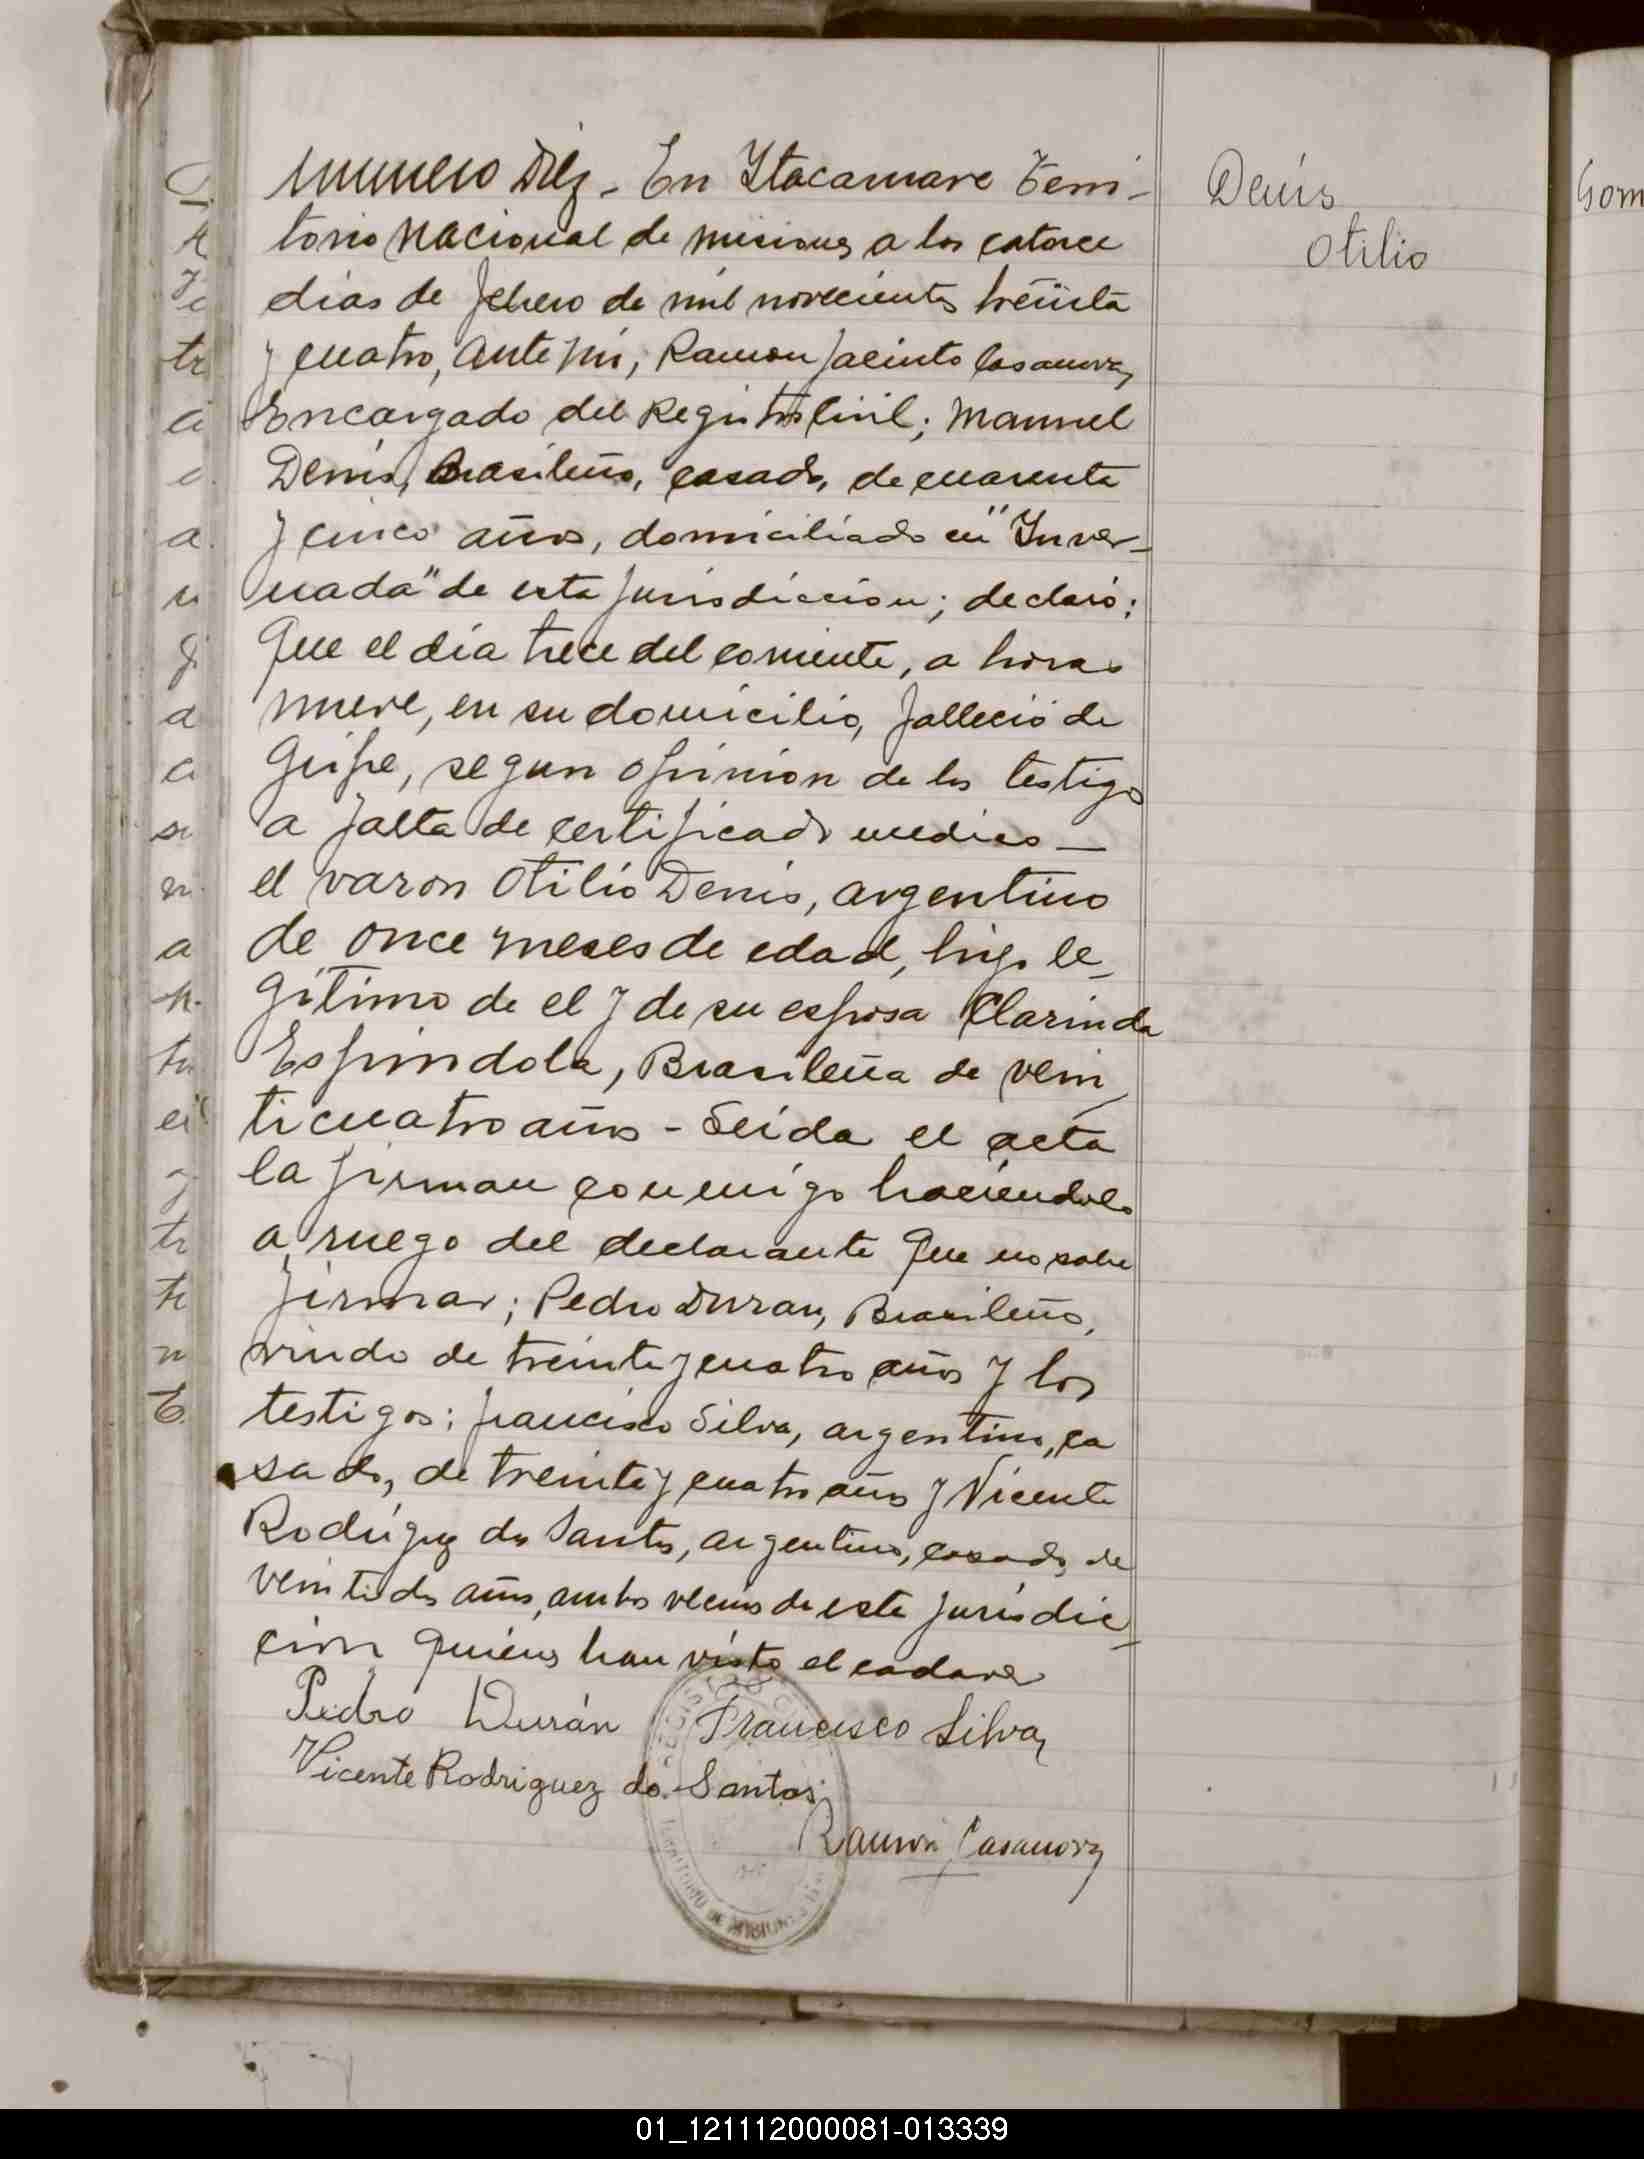 Numero Diez - En Itacaruare Terri-
torio Nacional de Misiones a los catorce
dias de febrero de mil novecientos treinta
y cuatro, ante mi, Ramon Jacinto Casanova,
Encargado del Registro Civil; Manuel
Denis, Brasileño, casado, de cuarenta
y cinco años, domiciliado en "Inver-
nada" de esta jurisdiccion; declaró:
Que el día trece del corriente, a horas
nueve, en su domicilio, falleció de
Gripe, segun opinion de los testigos
a falta de certificado medico —
el varon Otilio Denis, argentino
de once meses de edad, hijo le-
gitimo de el y de su esposa Clarinda
Espindola, Brasileña de vein
ticuatro años - Leida el acta
la firman conmigo haciendolo
a ruego del declarante que no sabe
firmar; Pedro Duran, Brasileño,
viudo de treinta y cuatro años y los
testigos: Francisco Silva, argentino, ca
sado, de treinta y cuatro años y Vicente
Rodriguez dos Santos, argentino, casado, de
veintidos años, ambos vecinos de esta jurisdic-
cion quienes han visto el cadaver
Pedro Durán Francisco Silva
Vicente Rodriguez do Santos
Ramón Casanova
Denis
Otilio
Gom
REGISTRO
TERRITORIO DE MISIONES
01_121112000081-013339